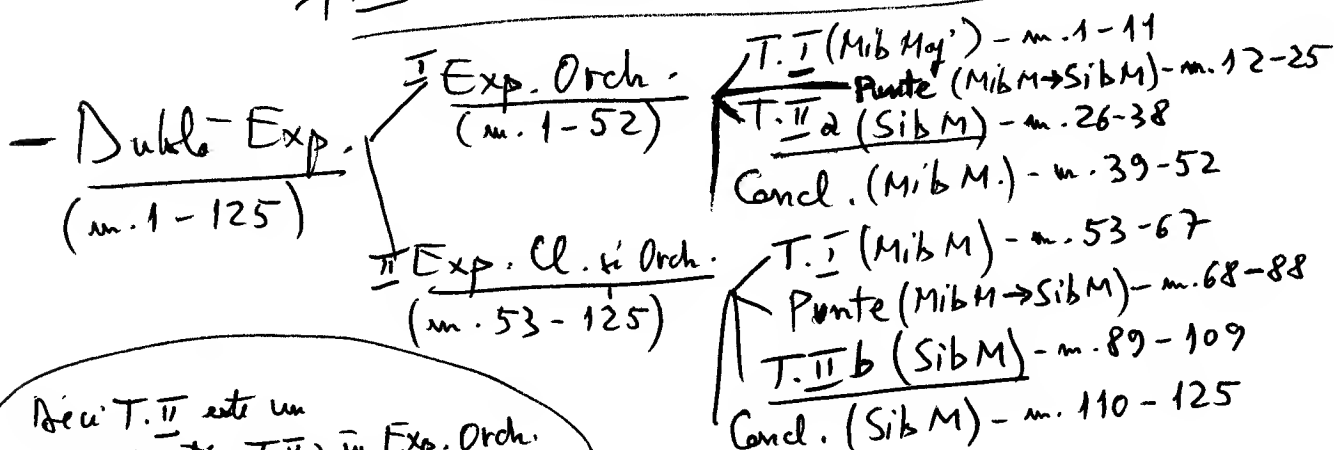 I Exp. Orch.
(m. 1-52)
T. I (Mib Maj.) - m. 1-11
Punte (Mib M→Sib M) - m. 12-25
T. II a (Sib M) - m. 26-38
Concl. (Mib M.) - m. 39-52
- Dublă Exp.
(m. 1-125)
II Exp. Cl. și Orch.
(m. 53-125)
T. I (Mib M) - m. 53-67
Punte (Mib M→Sib M) - m. 68-88
T. II b (Sib M) - m. 89-109
Concl. (Sib M) - m. 110-125
Deci T. II este un
T. II în Exp. Orch.